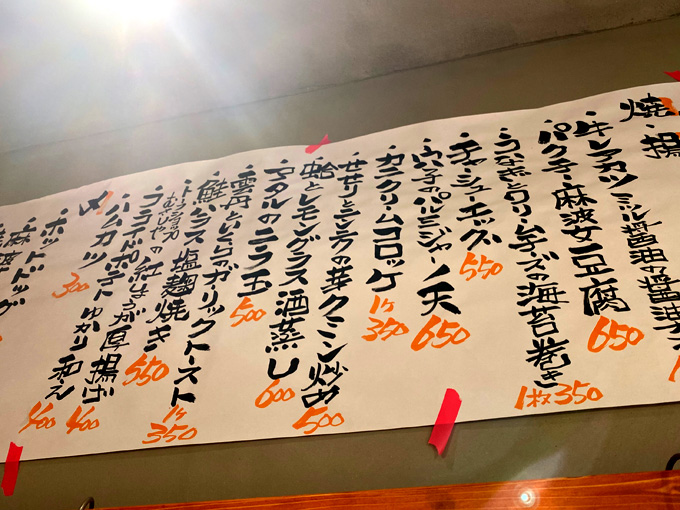 焼・揚
・牛レアカツ ミル醤油の醤油
・パクチー麻波女豆腐 650
・うなぎとクリームチーズの海苔巻き 1枚350
・チャーシューエッグ 550
・ウドの子のパルミジャーノ天 650
・カニクリームコロッケ 1ヶ350
・ササリとニンニクの芽クミン炒め 500
・蛤とレモングラス酒蒸し 600
・ホタルのニラ玉 500
・雲丹といくらのガーリックトースト 1ヶ350
・鮭ハラス塩麹焼き 550
の紅しょうが厚揚げ 400
・フライドポテトゆかり和え 400
・ハムカツ 300
・ホットドッグ
・麻婆